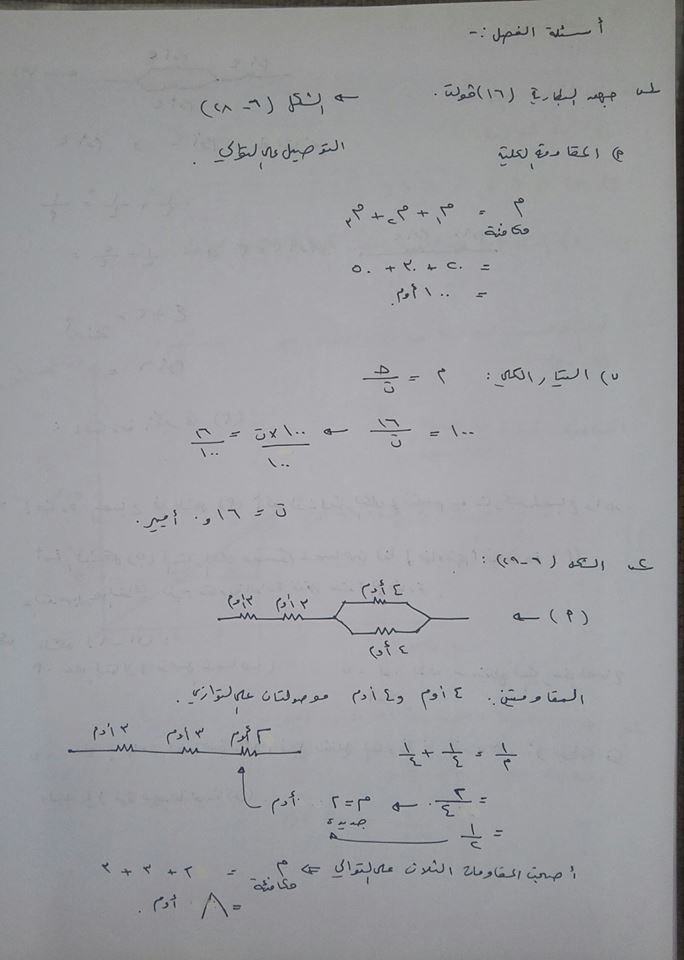 أسئلة الفصل :-
س١ جهد البطارية (١٦) فولت. ← الشكل (٦-٢٨)
أ) المقاومة الكلية التوصيل على التوالي.
م مكافئة = م١ + م٢ + م٣
= ٢٠ + ٣٠ + ٥٠
= ١٠٠ أوم.
ب) التيار الكلي: م = جـ/ت
١٠٠ = ١٦/ت ← ١٠٠×ت/١٠٠ = ١٦/١٠٠
ت = ١٦و٠ أمبير.
س٢ الشكل (٦-٢٩):
(أ) ← ٣ أوم ٣ أوم ٤ أوم
٤ أوم
المقاومتين: ٤ أوم و ٤ أوم موصولتان على التوازي.
٣ أوم ٣ أوم ٢ أوم
١/م = ١/٤ + ١/٤
= ٢/٤ ← م جديدة = ٢ أوم
= ١/٢
أصبحت المقاومات الثلاث على التوالي ← م مكافئة = ٢ + ٣ + ٣
= ٨ أوم.